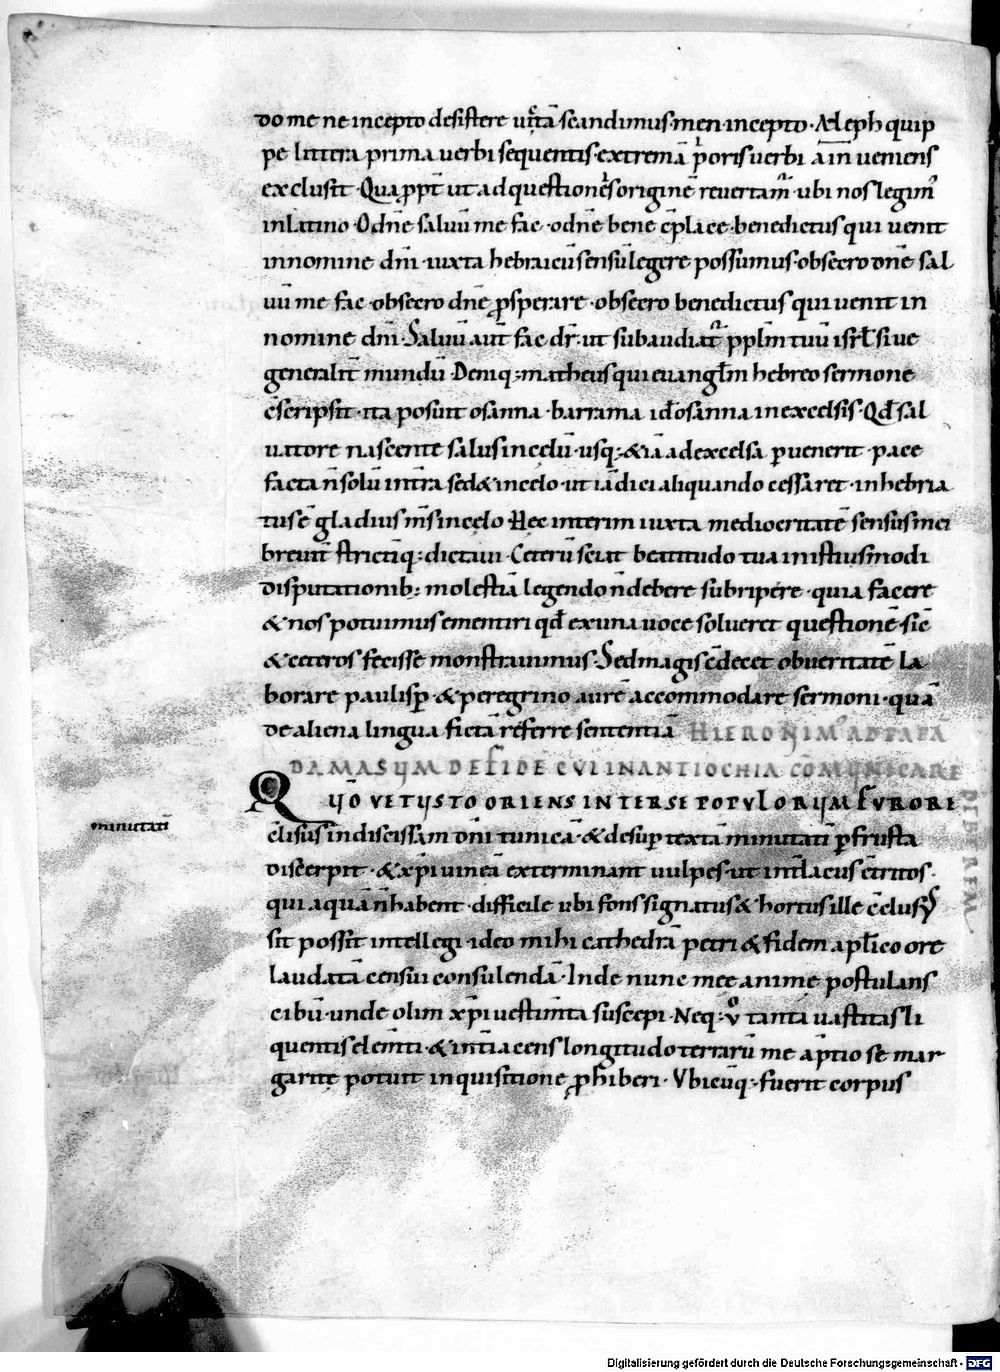 do me ne incepto desistere uřtā scandimus·men·incepto·Aleph quip
pe littera prima uerbi sequentis·extremā p̄oris uerbi āīn ueniens
exclusit·Quapp̄t ut ad questionēs originē reuertam̄·ubi nos legim̄
in latino·O dn̄e saluū me fac·o dn̄e bene cp̄lace·benedictus qui uenit
in nomine dn̄i·iuxta hebraicū sensū legere possumus·obsecro dn̄e sal
uū me fac·obsecro dn̄e ꝓsperare·obsecro benedictus qui uenit in
nomine dn̄i·Saluū aut̄ fac dr̄·ut subaudiat̄ pp̄lm tuū isrl̄ siue
generalit̄ mundū Deniq;·matheus qui euangl̄m hebreo sermone
c̄scripsit·ita posuit osanna·barrama id ē osanna in excelsis·Qd̄ sal
uatore nascente salus in celū·usq;·&iā ad excelsa ꝑuenerit·pace
facta n̄ solū in tr̄a sed & in celo·ut iā dici aliquando cessaret·inhebria
tus ē gladius m̄s in celo Hec interim iuxta mediocritatē sensus mei
breuit̄ strictiq;·dictaui·Ceterū sciat beatitudo tua in istiusmodi
disputationib; molestiā legendo n̄ debere subripere·quia facere
& nos potuimus ementiri qd̄ ex una uoce solueret questionē·sic̄
& ceteros fecisse monstrauimus·Sed magis c̄decet ob ueritatē la
borare paulisꝑ·& peregrino aurē accommodare sermoni·quā
de aliena lingua fictā referre sententiā HIERONIM' AD PAPĀ
DAMASUM DE FIDE CUI IN ANTIOCHIA COM̄UNICARE
DEBEREM
QUO VETUSTO ORIENS INTER SE POPULORUM FURORE
minutati
c̄lisus indiscissam dn̄i tunicā·& desuꝑ textā minutati ꝑ frusta
discerpit·& xp̄i uineā exterminant uulpes·ut int̄ lacus c̄tritos·
qui aquā n̄ habent·difficile ubi fons signatus & hortus ille c̄clusus
sit possit intellegi ideo mihi cathedrā petri & fidem apl̄ico ore
laudatā censui consulendā·Inde nunc mee anime postulans
cibū·unde olim xp̄i uestim̄ta suscepi·Neq;·ū tanta uastitas li
quentis elem̄ti·& int̄iacens longitudo terrarū me a p̄tio se mar
garite potuit inquisitione ꝓhiberi·Vbicūq;·fuerit corpus